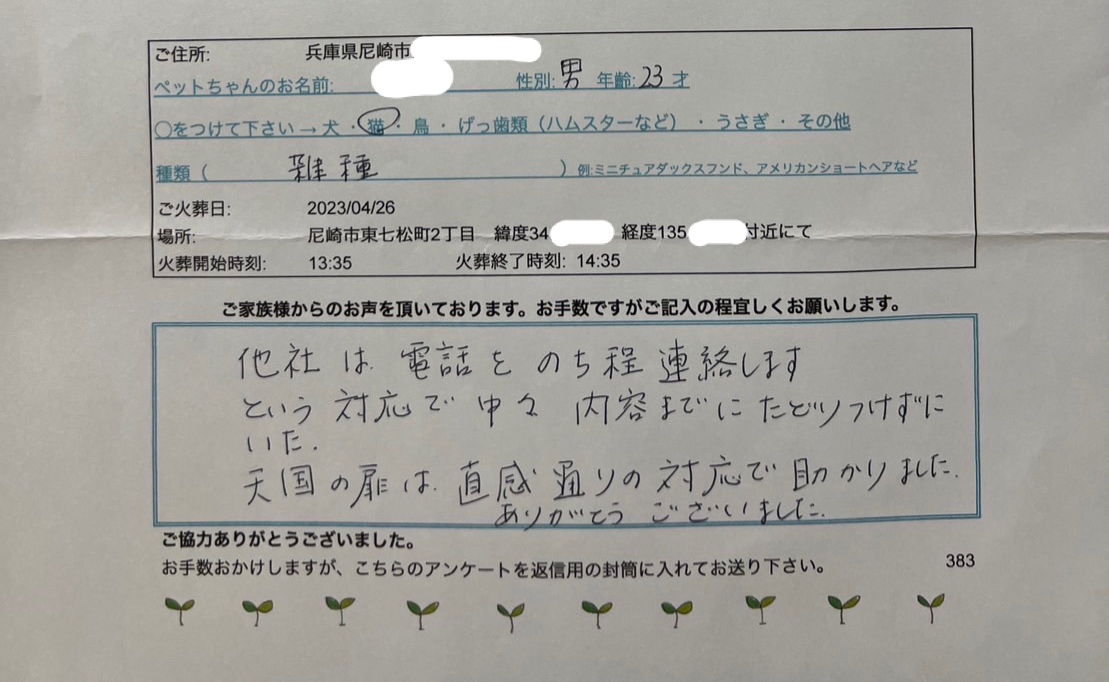 ご住所: 兵庫県尼崎市
ペットちゃんのお名前: 性別: 男 年齢: 23 才
○をつけて下さい→ 犬 ・ 猫 ・ 鳥 ・ げっ歯類（ハムスターなど） ・ うさぎ ・ その他
種類（ 雑種 ）例:ミニチュアダックスフンド、アメリカンショートヘアなど
ご火葬日: 2023/04/26
場所: 尼崎市東七松町2丁目 緯度34 経度135 付近にて
火葬開始時刻: 13:35 火葬終了時刻: 14:35
ご家族様からのお声を頂いております。お手数ですがご記入の程宜しくお願いします。
他社は電話をのち程連絡します
という対応で中々内容までにたどりつけずに
いた.
天国の扉は直感通りの対応で助かりました.
ありがとうございました.
ご協力ありがとうございました。
お手数おかけしますが、こちらのアンケートを返信用の封筒に入れてお送り下さい。
383